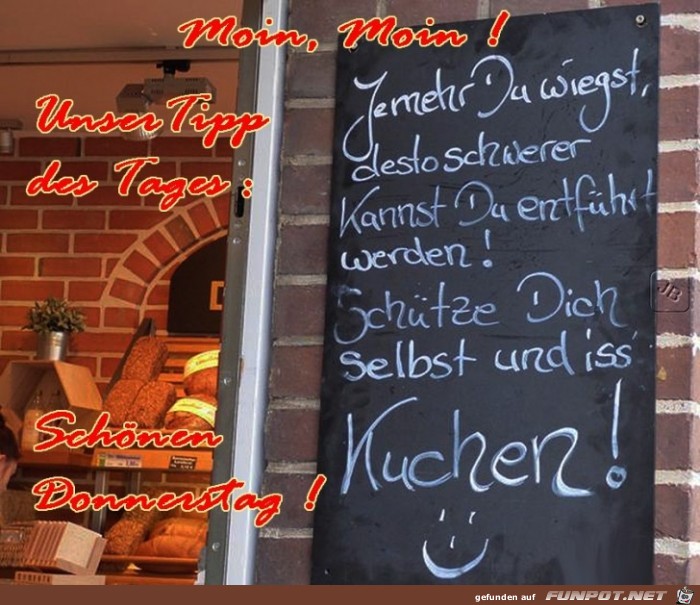 Moin, Moin !
Unser Tipp
des Tages :
Je mehr Du wiegst,
desto schwerer
Kannst Du entführt
werden !
Schütze Dich
selbst und iss
Kuchen !
Schönen
Donnerstag !
JB
gefunden auf FUNPOT.NET